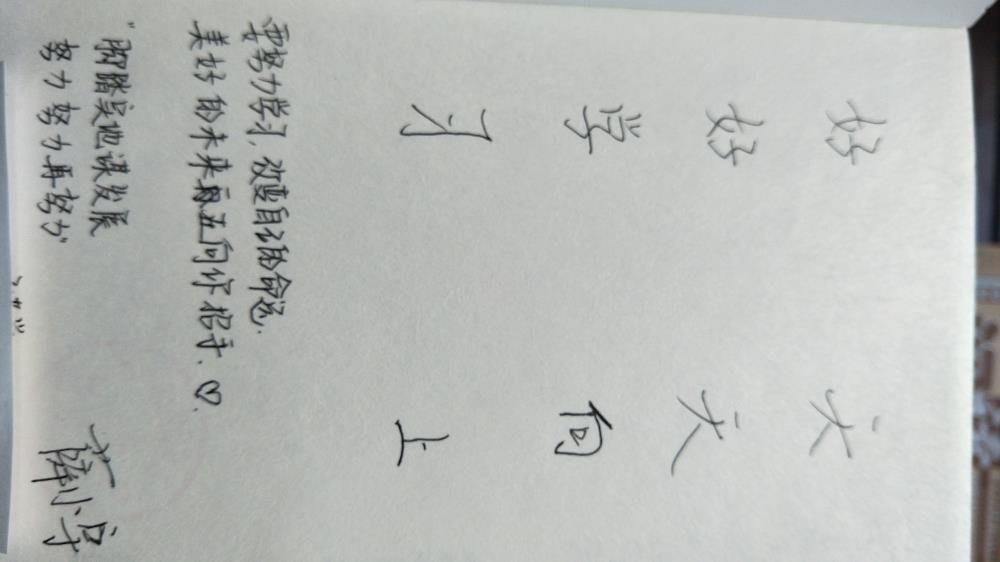 好好学习
天天向上
要努力学习,改变自己的命运.
美好的未来正向你招手.♡.
“脚踏实地谋发展
努力努力再努力”